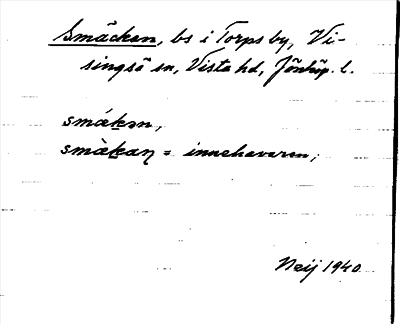 Smäcken, bs i Torps by, Vi-
singsö sn, Vista hd, Jönköp. l.
smákən,
smàkaɳ = innehavaren;
Neij 1940